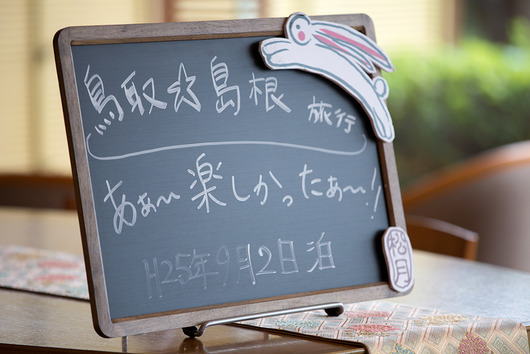 鳥取☆島根 旅行
あぁ〜楽しかったぁ〜!
H25年9月12日 泊
松月